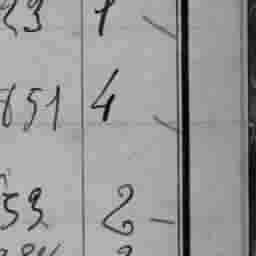 23 1
651 4
53 2 -